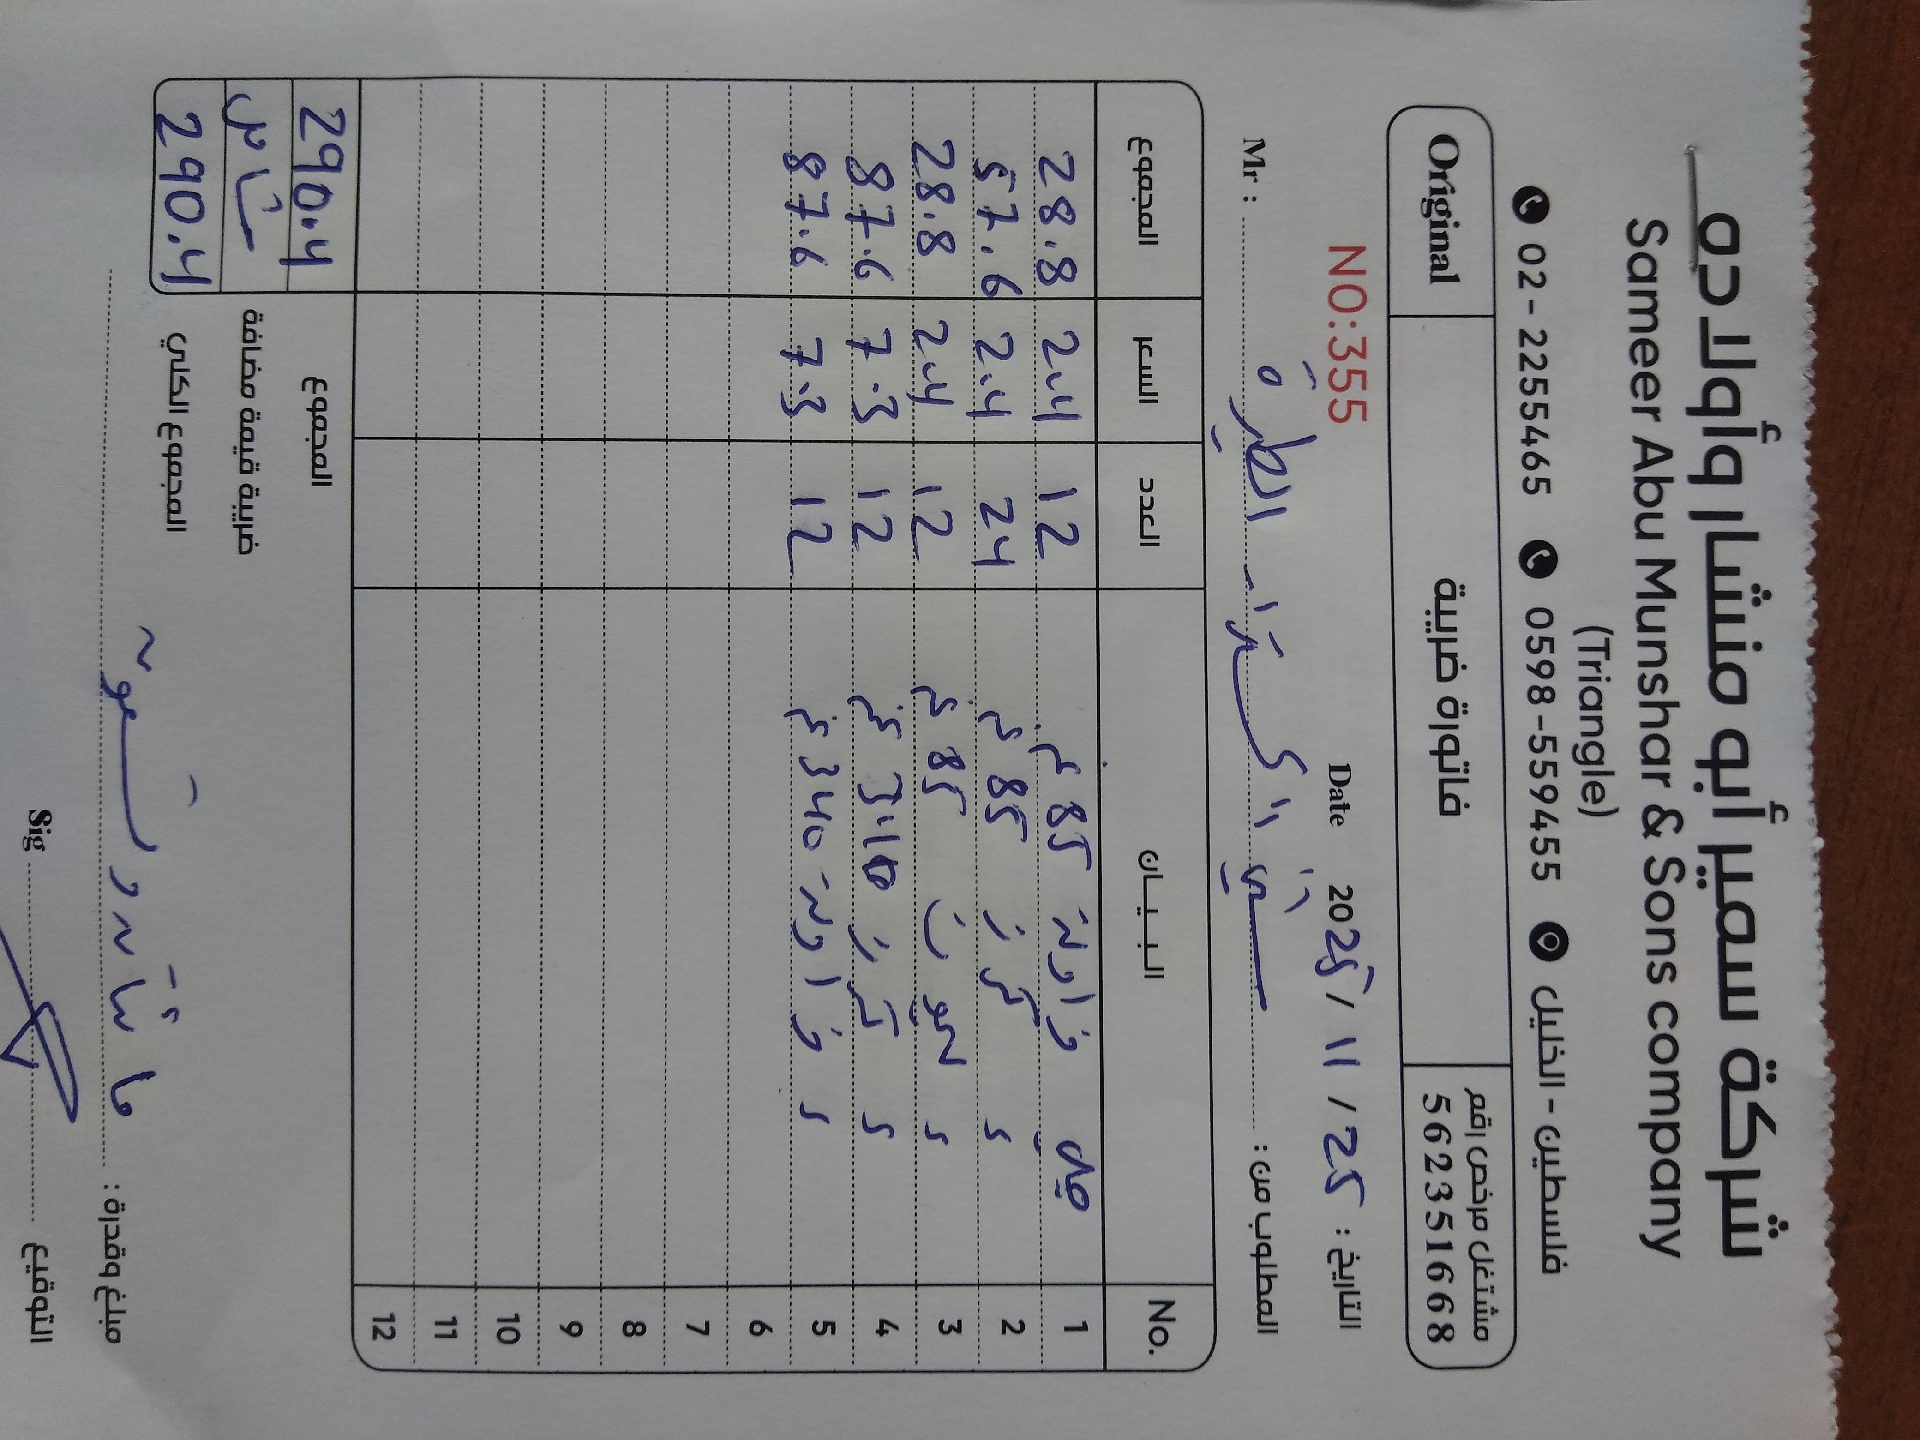 شركة سمير أبو منشار وأولاده
Sameer Abu Munshar & Sons company
(Triangle)
02-2255465 0598-559455 فلسطين - الخليل
Original فاتورة ضريبية مشتغل مرخص رقم 562351668
NO:355 Date 2025 / 11 / 25 التاريخ :
Mr : المطلوب من :
المجموع السعر العدد البيــان No.
28.8 2.4 12 85 غم فراولة 1
57.6 2.4 24 85 غم كرز 2
28.8 2.4 12 85 غم توت 3
87.6 7.3 12 340 غم كرز 4
87.6 7.3 12 340 غم فراولة 5
6
7
8
9
10
11
12
290.4 المجموع
شامل ضريبة قيمة مضافة
290.4 المجموع الكلي
مبلغ وقدرة : مائتان وتسعون
Sig التوقيع